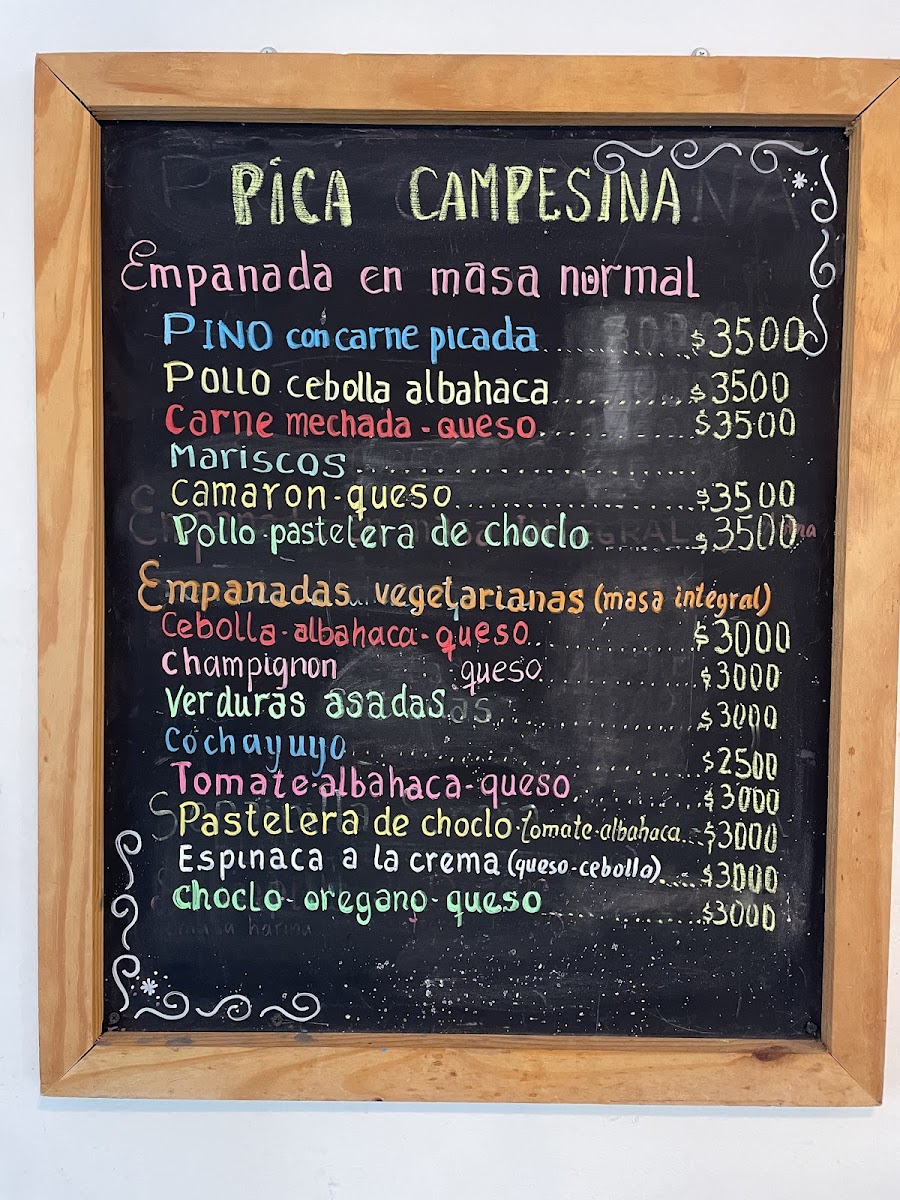 PICA CAMPESINA
Empanada en masa normal
PINO con carne picada........$3500
POLLO cebolla albahaca........$3500
Carne mechada - queso........$3500
Mariscos........
camaron - queso........$3500
Pollo - pastelera de choclo........$3500
Empanadas vegetarianas (masa integral)
Cebolla - albahaca - queso........$3000
champignon queso........$3000
Verduras asadas........$3000
Cochayuyo........$2500
Tomate - albahaca - queso........$3000
Pastelera de choclo - tomate - albahaca...$3000
Espinaca a la crema (queso - cebolla)....$3000
choclo - oregano - queso........$3000